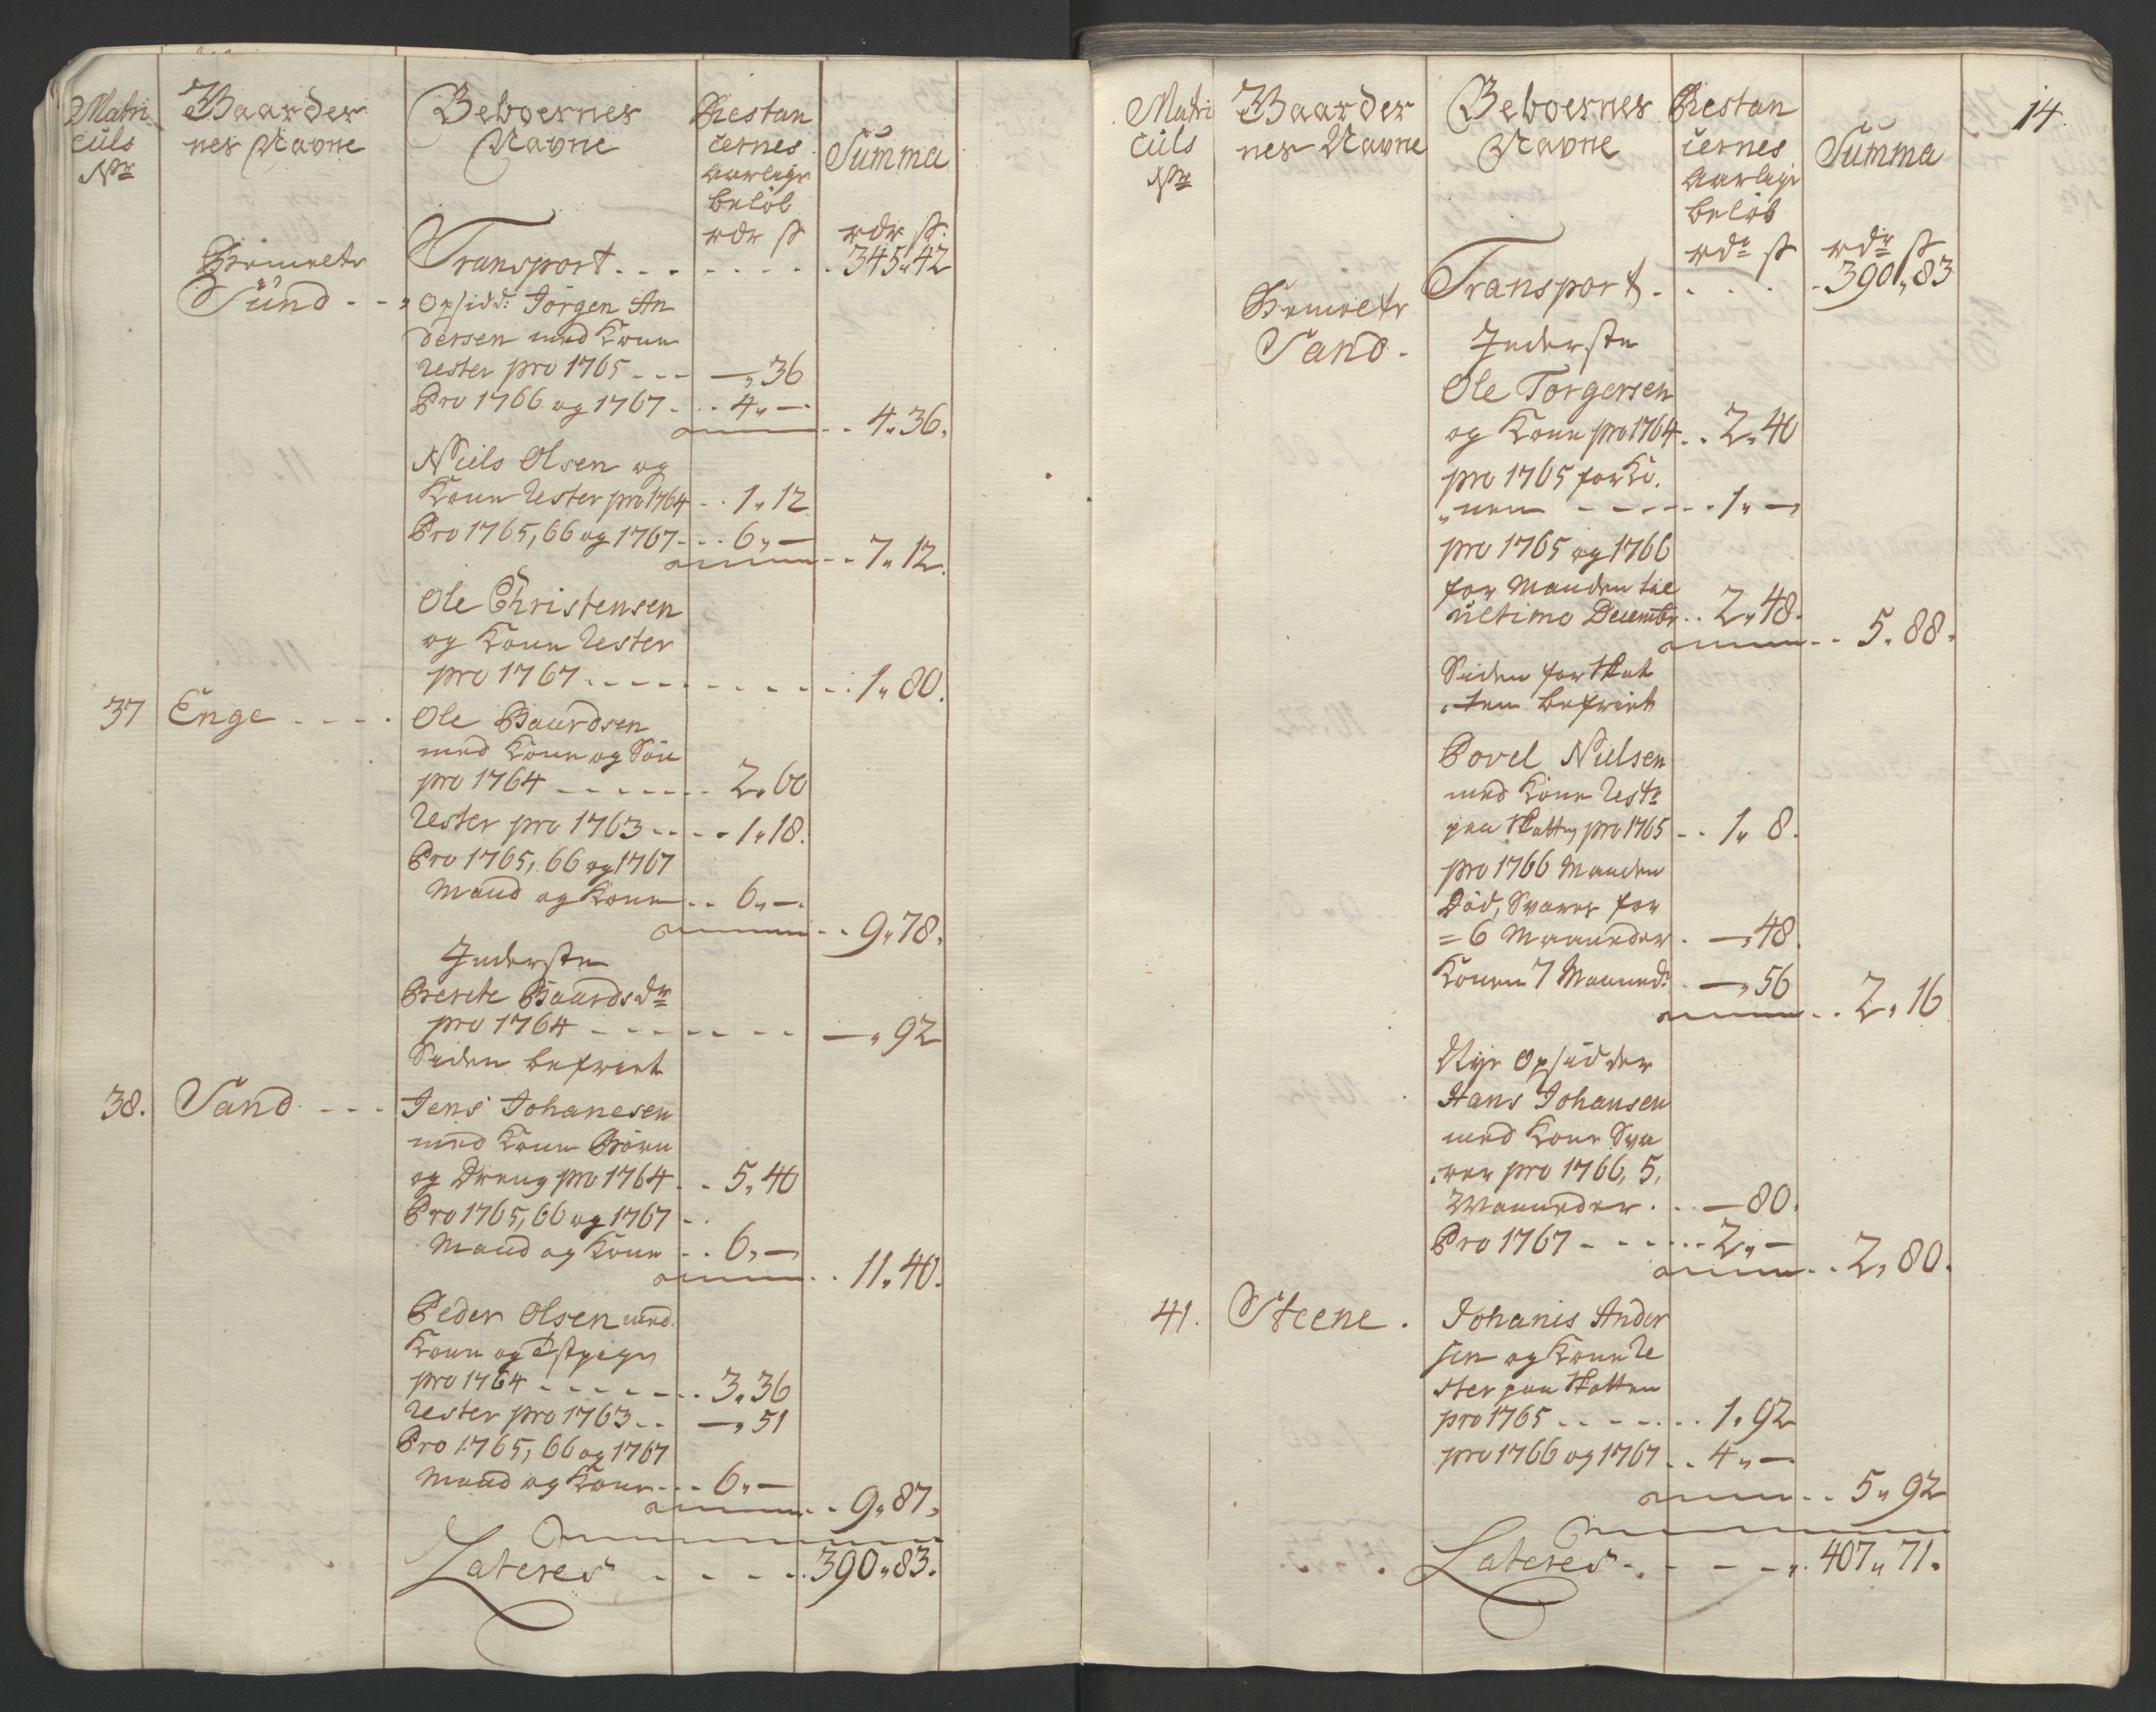 Matri
culs
No
Gaarder
nes Navne
Beboernes
Navne
Restan
cernes
Aarlige
beløb
rdr s
Summa
rdr s
Transport . . . . . . . . 345 " 42
Sund - - "
Opsidd: Jörgen An
dersen med Kone
rester pro 1765 - - - — " 36
Pro 1766 og 1767 - . . 4 " — .
. . 4 " 36 "
Niels Olsen og
Kone rester pro 1764 - . 1 " 12
Pro 1765, 66 og 1767 - . . 6 " —
- - 7 " 12.
Ole Christensen
og Kone rester
pro 1767 . . . . . . . . . 1 " 80.
37 Enge - - - . Ole Baardsen
med Kone og Søn
pro 1764 - - - - - - . 2 " 60
rester pro 1763 - - . - 1 " 18.
Pro 1765, 66 og 1767
Mand og Kone . . 6 " — .
. . 9 " 78 "
Inderste
Berete Baards dr
pro 1764 - - - - - - - — " 92
Siden befriet
38. Sand - - - Jens Johanesen
med Kone Børn
og Dreng pro 1764 . . 5 " 40
Pro 1765, 66 og 1767 - .
Mand og Kone . . 6 " —
. . 11 " 40.
Peder Olsen med
Kone og
pro 1764 - - - - - - . . 3 " 36
rester pro 1763 . . — " 51
Pro 1765, 66 og 1767
Mand og Kone - - . 6 " —
. . 9 " 87 "
Lateres - - - - . 390 " 83.
14.
Matri
culs
No
Gaarder
nes Navne
Beboernes
Navne
Restan
cernes
Aarlige
beløb
rdr s
Summa
rdr s
Transport . . . . . 390 " 83
Sand .
Inderste
Ole Torgersen
og Kone pro 1764 . . 2 " 40
pro 1765 for Ko
" nen - - - - - . 1 " —
pro 1765 og 1766
for Manden til
ultimo Decembr . . 2 " 48.
. . 5 " 88 "
Siden for Skat
" ten befriet
Povel Nielsen
med Kone restr
paa Skatten pro 1765 . . 1 " 8.
pro 1766 Manden
Død, Svarer for
= 6 Maaneder . — " 48.
Konen 7 Maaned: . — " 56
. . 2 " 16
Nye Opsidder
Hans Johansen
med Kone Sva
" rer pro 1766, 5,
Maaneder . . . — 80.
Pro 1767 - - - - . . 2 " —
. . 2 " 80.
41. Steene . Johanis Ander
sen og Kone re
ster paa Skatten
pro 1765 . . - - - . . 1 " 92
pro 1766 og 1767 . . 4 " —
. . 5 " 92
Lateres - . - - - . 407 " 71.